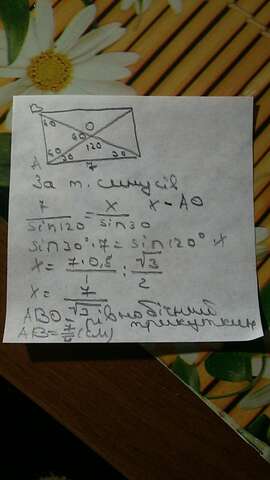 B
60 60 O
120
60 30 30
A 7
За т. синусів
7/sin120 = x/sin30 x - AO
sin30°·7 = sin120°·x
x = 7·0,5/1 : √3/2
x = 7/√3
ABO - рівнобічний
трикутник
AB = 7/√3 (см)